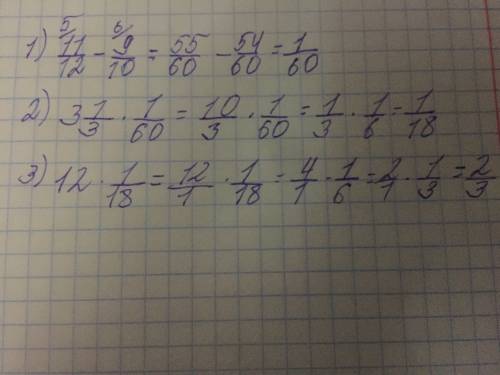 1) ⁵⁄11/12 - ⁶⁄9/10 = 55/60 - 54/60 = 1/60
2) 3 1/3 · 1/60 = 10/3 · 1/60 = 1/3 · 1/6 = 1/18
3) 12 · 1/18 = 12/1 · 1/18 = 4/1 · 1/6 = 2/1 · 1/3 = 2/3